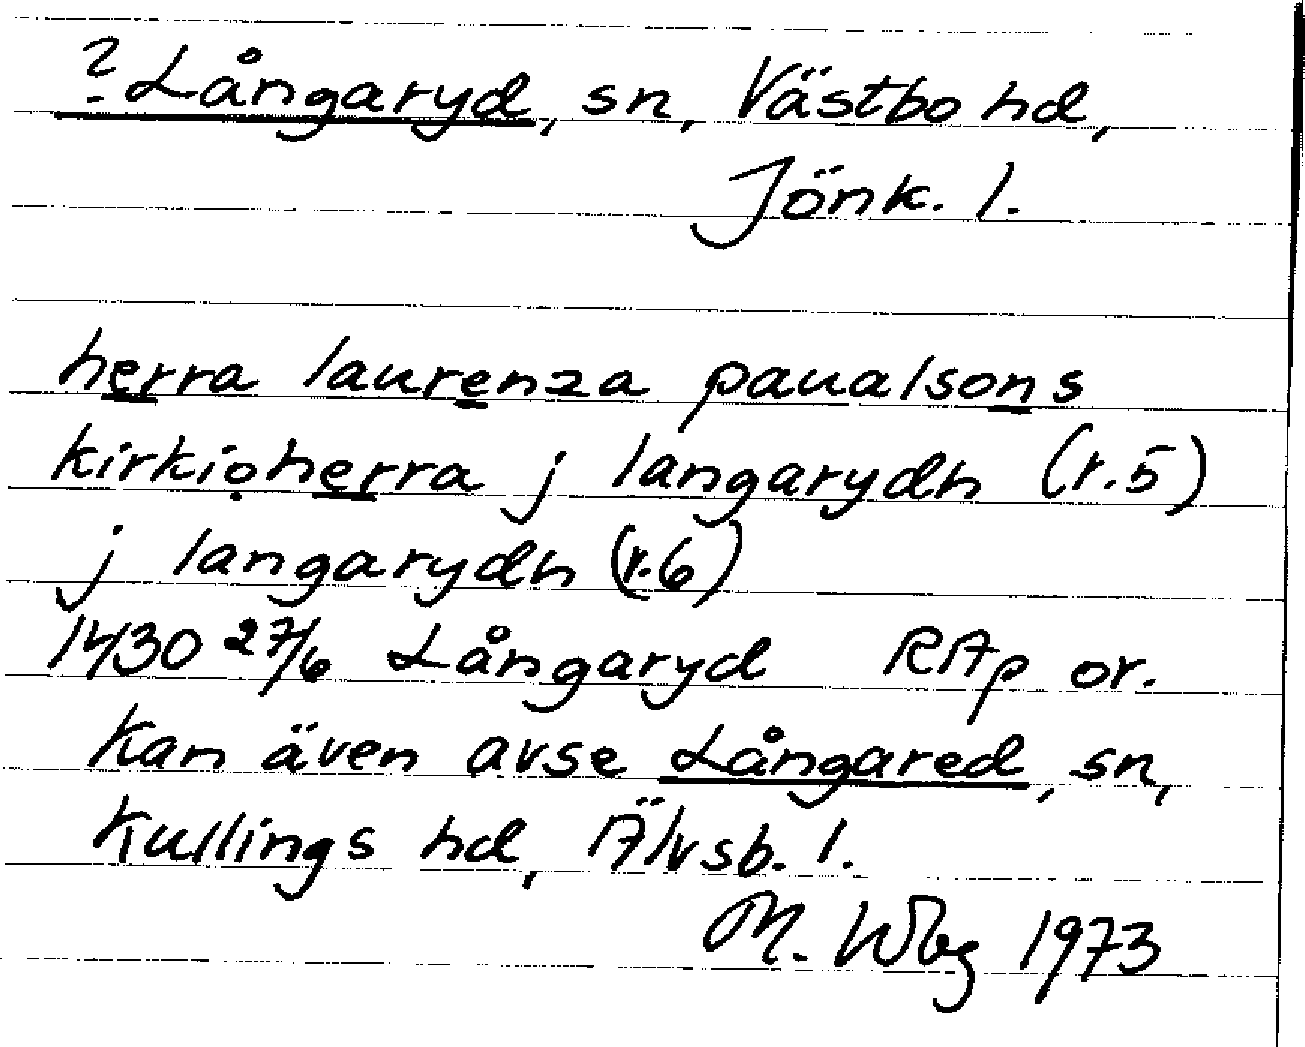 ? Långaryd, sn, Västbo hd,
Jönk. l.
herra laurenza paualsons
kirkioherra j langarydh (r.5)
j langarydh (r.6)
1430 27/6 Långaryd RAp or.
Kan även avse Långared, sn,
Kullings hd, Älvsb. l.
M. Wbg 1973